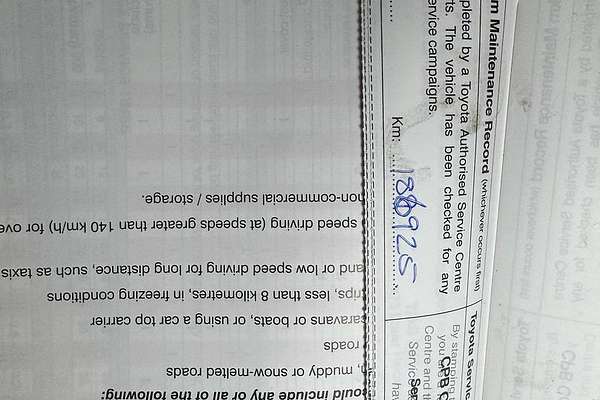 m Maintenance Record (whichever occurs first)
pleted by a Toyota Authorised Service Centre
ts. The vehicle has been checked for any
ervice campaigns.
Km: 186925
Toyota Servic
By stamping
you
CPB C
Centre and th
Servic
Ser
ha
ould include any or all of the following:
, muddy or snow-melted roads
roads
caravans or boats, or using a car top carrier
trips, less than 8 kilometres, in freezing conditions
and or low speed driving for long distance, such as taxis
speed driving (at speeds greater than 140 km/h) for ove
non-commercial supplies / storage.